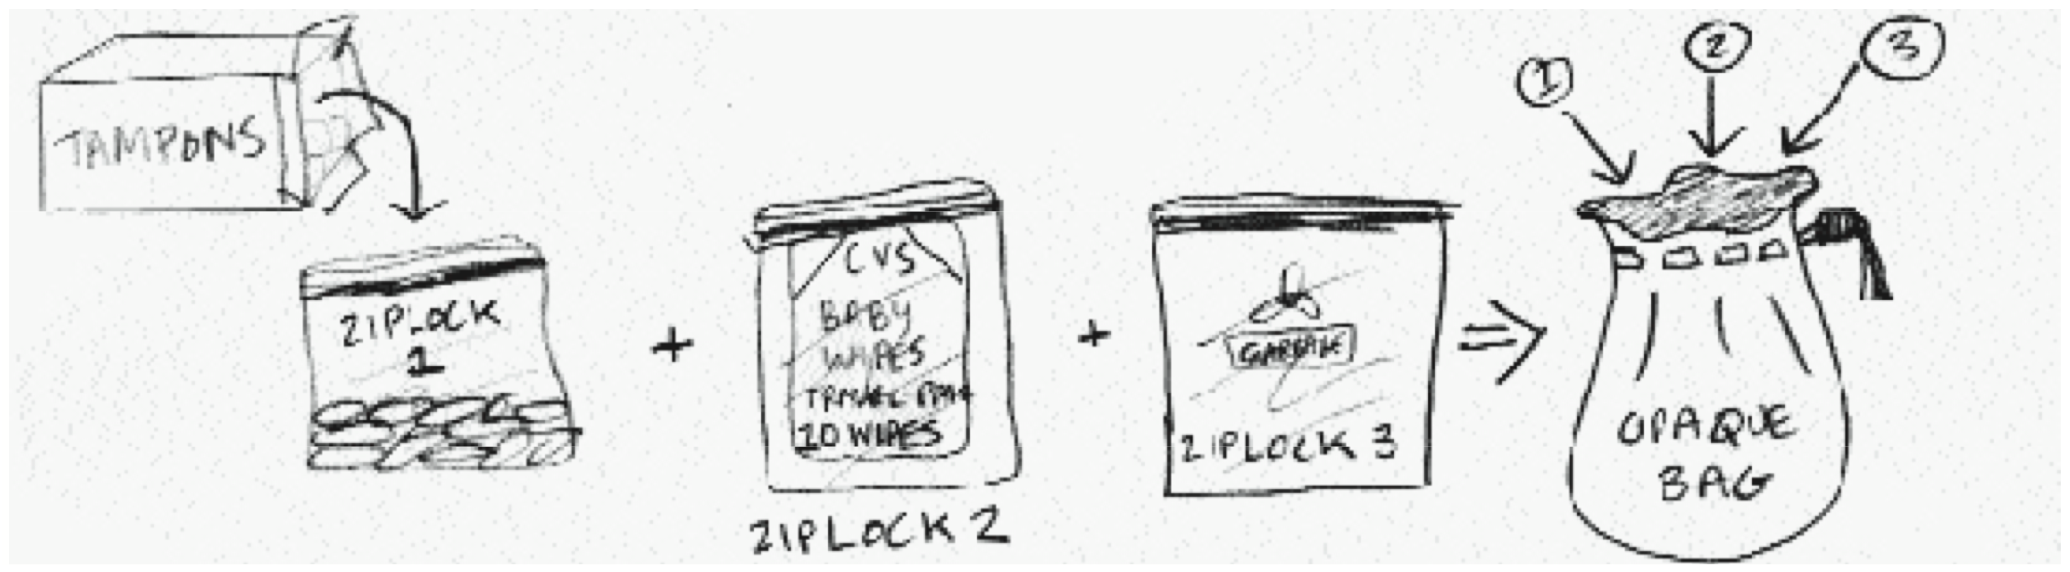 TAMPONS
ZIPLOCK
1
+
CVS
BABY
WIPES
20 WIPES
ZIPLOCK 2
+
GARBAGE
ZIPLOCK 3
⇒
1
2
3
OPAQUE
BAG